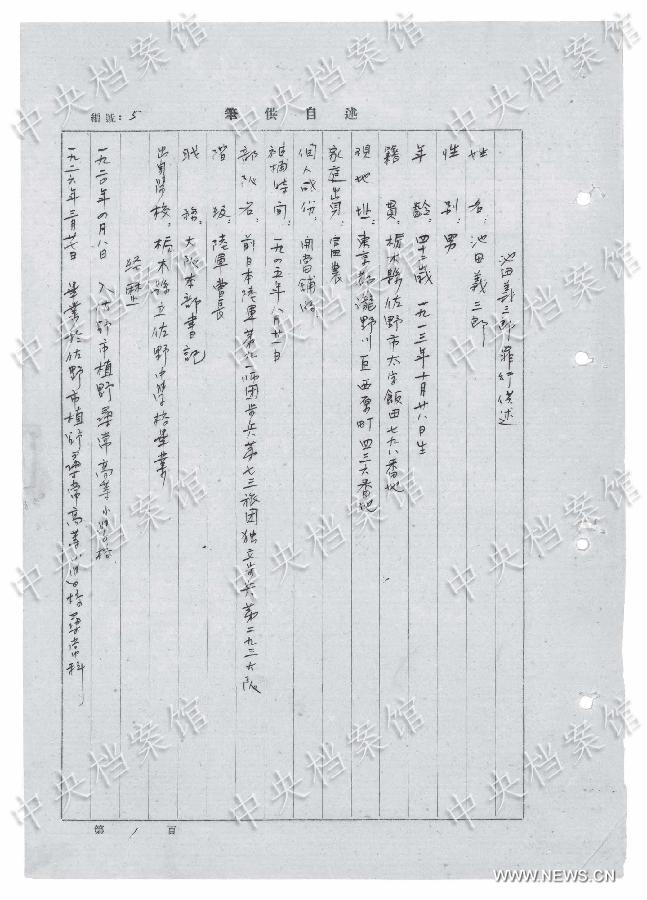 述自供筆
編號：5
池田義三郎罪行供述
姓名：池田義三郎
性別：男
年齡：四十二歳 一九一三年十月廿八日生
籍貫：栃木縣佐野市大字飯田七九八番地
現地址：東京都瀧野川區西原町四三六番地
家庭出身：富農
個人成份：開當舖
被捕時間：一九四五年八月廿一日
部隊名：前日本陸軍第 師團步兵第七三旅团独立步兵第二九三大队
階級：陸軍曹長
职務：大队本部書記
出身學校：栃木縣立佐野中學校畢業
経歴
一九二〇年四月八日 入佐野市植野尋常高等小學校
一九二六年三月廿七日 畢業於佐野市植野尋常高等小學校尋常科
第1頁
中央档案馆
WWW.NEWS.CN